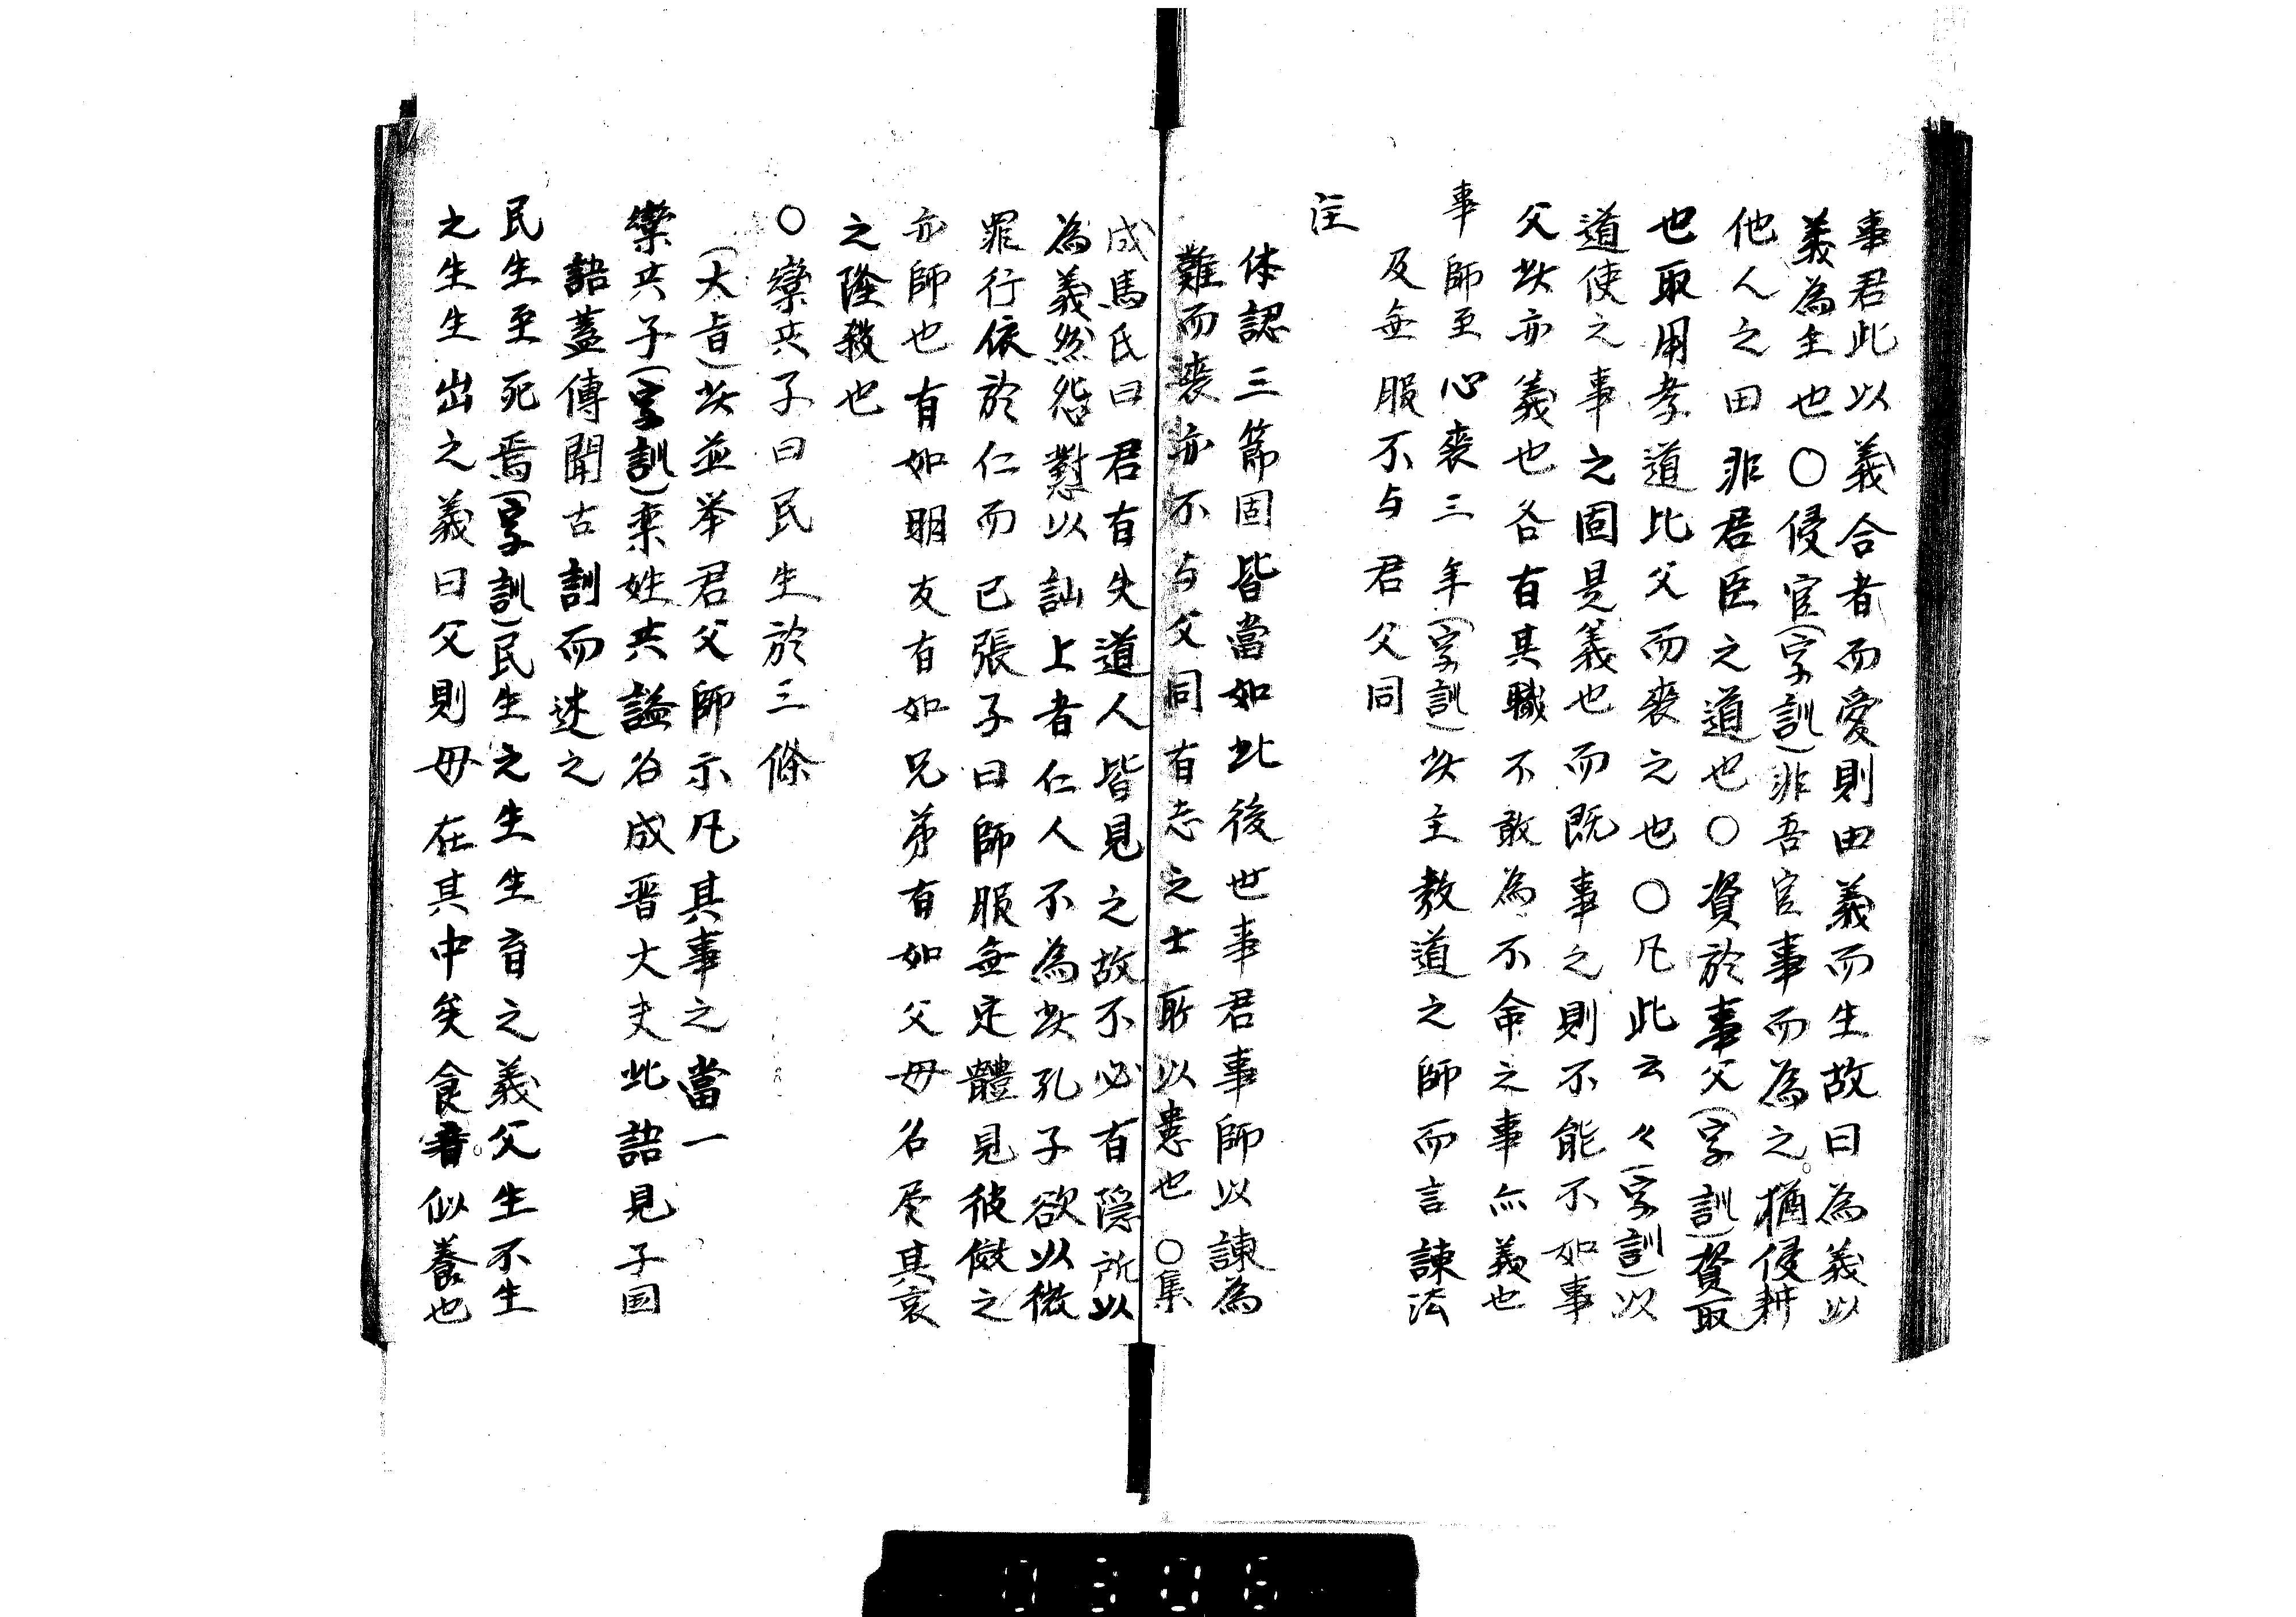 事君此以義合者而愛則由義而生故曰為義以
義為主也○侵官(字訓)非吾官事而為之猶侵耕
他人之田非君臣之道也○資於事父(字訓)資取
也取用孝道比父而喪之也○凡此云々(字訓)以
道使之事之固是義也而既事之則不能不如事
父此亦義也各有其職不敢為不命之事亦義也
事師至心喪三年(字訓)此主教道之師而言諫法
及無服不与君父同
注
体認三節固皆當如此後世事君事師以諫為
難而喪亦不与父同有志之士所以患也○集
成馬氏曰君有失道人皆見之故不必有隱所以
為義然怨懟以訕上者仁人不為此孔子欲以微
罪行依於仁而已張子曰師服無定體見彼傚之
亦師也有如朋友有如兄弟有如父母名尽其哀
之隆殺也
○欒共子曰民生於三條
(大旨)此並举君父師示凡其事之當一
欒共子(字訓)栾姓共謚名成晋大夫此語見子国
語蓋傳聞古訓而述之
民生至死焉(字訓)民生之生生育之義父生不生
之生生出之義曰父則母在其中矣食音似養也
0306